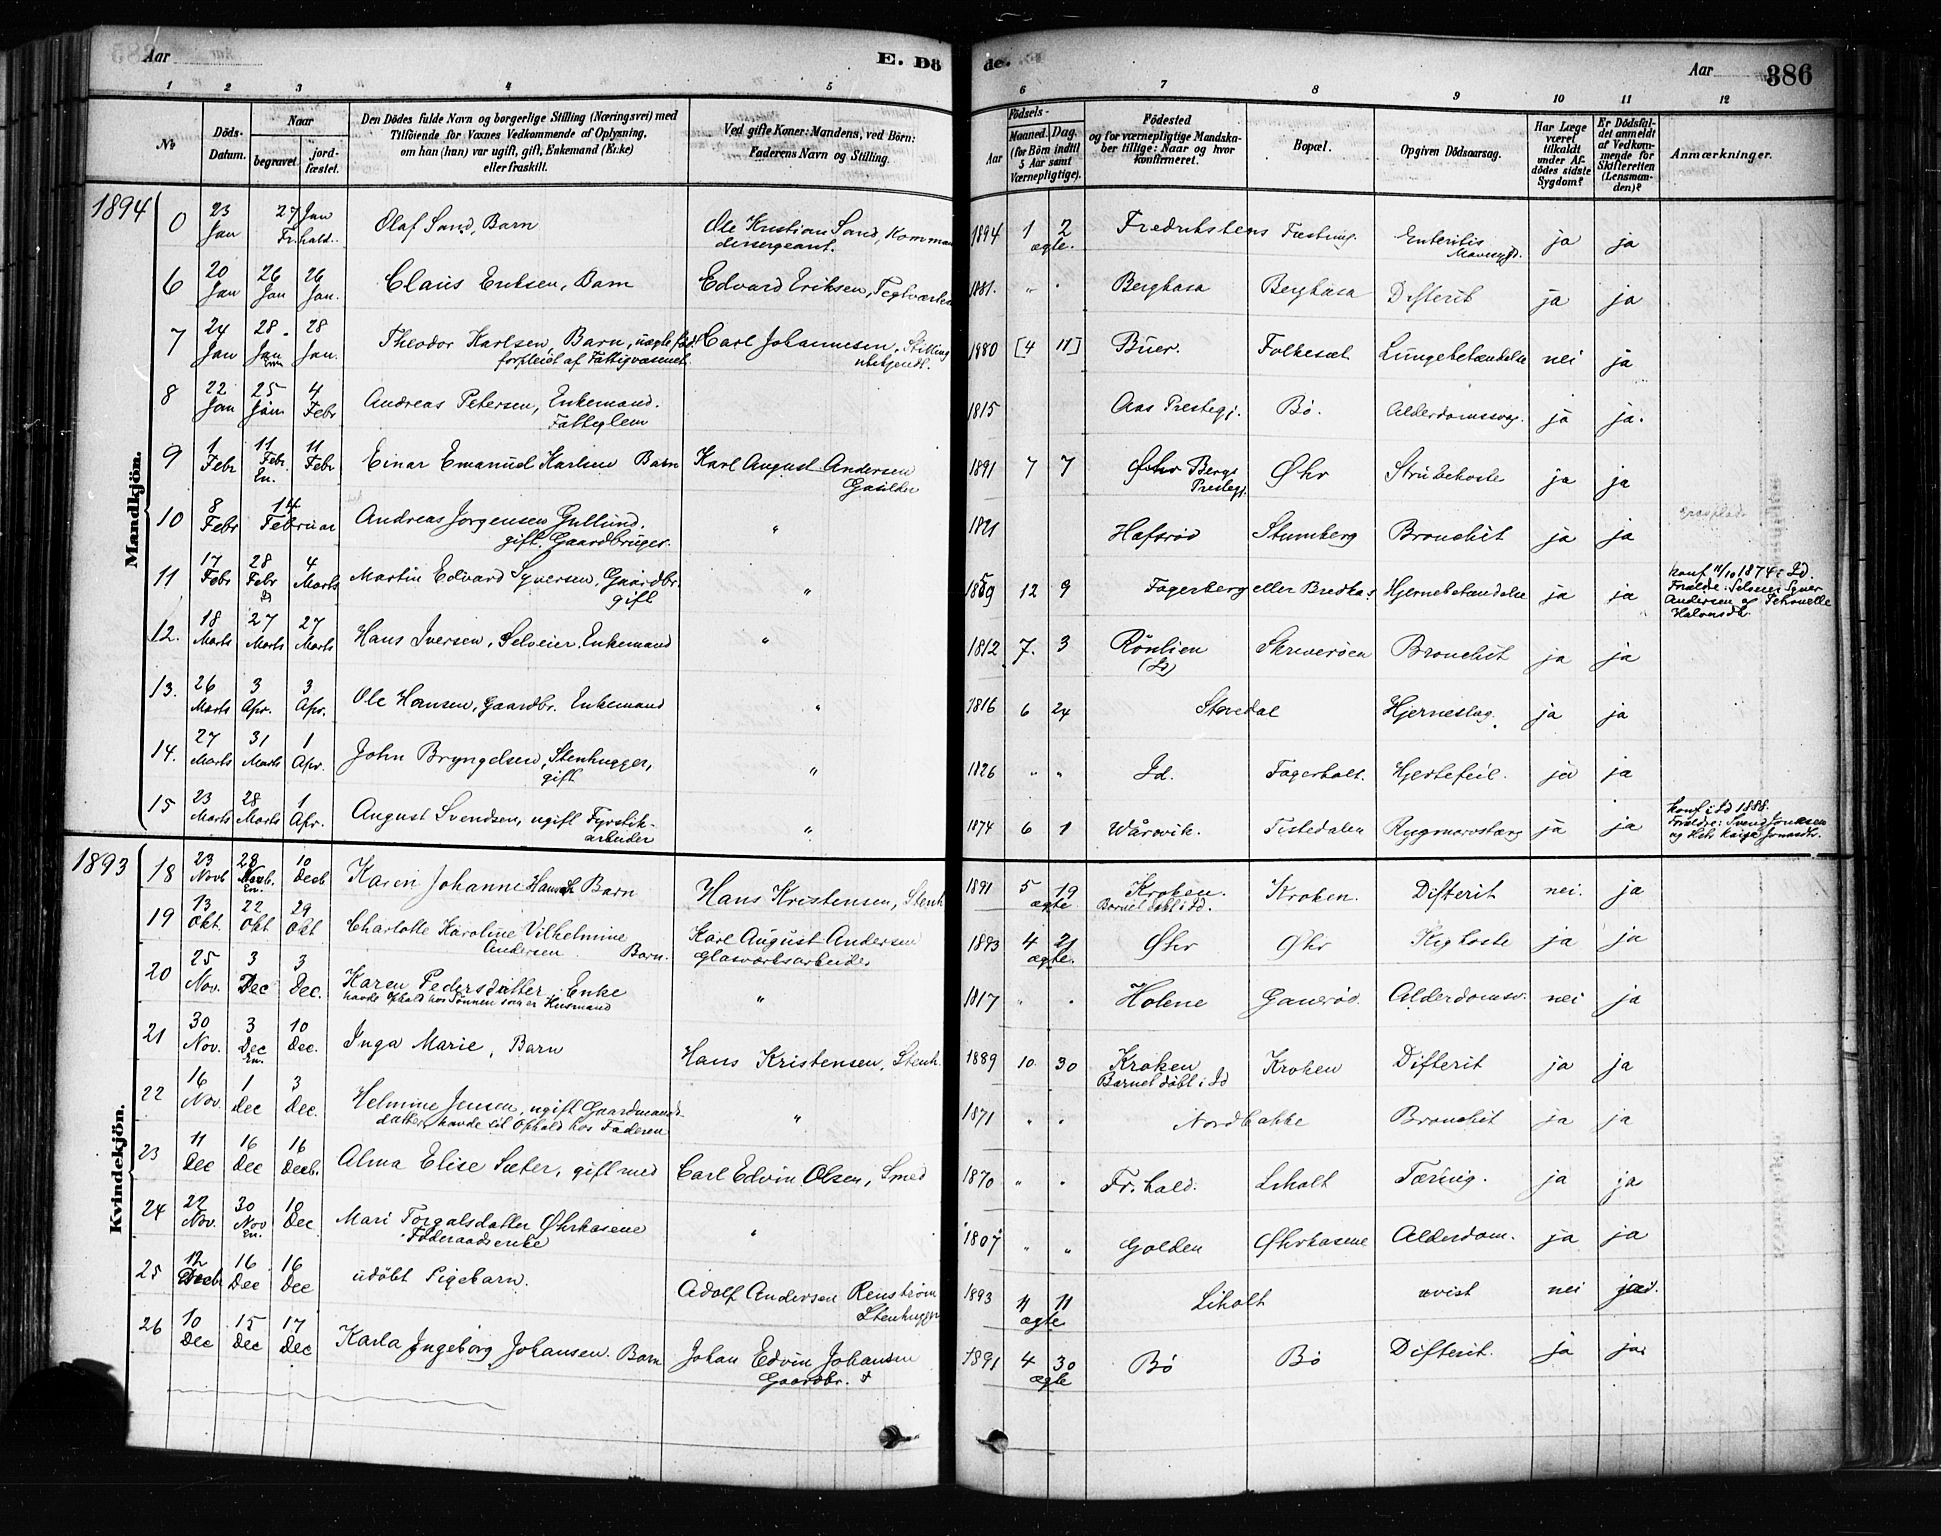 Aar
E. Dö
de.
Aar
386
1 2 3 4 5 6 7 8 9 10 11 12
No
Döds-Datum.
Naar
begravet.
jord-fæstet.
Den Dödes fulde Navn og borgerlige Stilling (Næringsvei) med
Tilföiende for Voxnes Vedkommende af Oplysning,
om han (hun) var ugift, gift, Enkemand (Enke)
eller fraskilt.
Ved gifte Koner: Mandens, ved Börn:
Faderens Navn og Stilling.
Födsels-
Aar
Maaned. Dag.
(for Börn indtil
5 Aar samt
Værnepligtige).
Födested
og for værnepligtige Mandska-
ber tillige: Naar og hvor
konfirmeret.
Bopæl.
Opgiven Dödsaarsag.
Har Læge
været
tilkaldt
under Af-
dödes sidste
Sygdom?
Er Dödsfal-
det anmeldt
af Vedkom-
mende for
Skifteretten
(Lensman-
den)?
Anmærkninger.
Mandkjön.
1894
0 23 Jan 27 Jan Fr.hald. Olaf Sand, Barn Ole Kristian Sand, Komman
dersergeant. 1894 1 2 ægte. Fredrikstens Fæstning. Enteritis ja ja
6 20 Jan 26 Jan 26 Jan. Claus Eriksen, Barn Edvard Eriksen, 1881. " " Berghasa Berghasa Difterit ja ja
7 24 Jan 28 Jan En 28 Jan. Theodor Karlsen, Barn, uægte født
forpleiet af Fattigvæsenet Carl Johannesen, Stilling
ubekjendt. 1880 [4 11] Buer. Folkesæt Lungebetændelse nei ja
8 22 Jan 25 Jan 4 Febr Andreas Petersen, Enkemand.
Fattiglem 1815 Aas Prestegj. Bø. Alderdomssvag. ja ja.
9 1 Febr 11 Febr. En. 11 Febr Einar Emanuel Karlsen Barn Karl August Andersen
1891 7 7 Øhr Bergs
Prestegj. Øhr Strubehoste ja ja
10 8 Febr 14 Februar Andreas Jørgensen Gullund.
gift. Gaardbruger. " 1821 Hafsrød Stumberg Bronchit ja ja
11 17 Febr 28 Febr 4 Marts Martin Edvard Syversen, Gaardbr.
gift " 1859 12 9 Fagerberg eller Bredkas Hjernebetændelse ja ja konf 11/10 1874 i Id.
Forældre: Selveier Syver
Andersen og Petronelle
Halvorsdtr.
12. 18 Marts 27 Marts 27 Marts Hans Iversen, Selveier, Enkemand " 1812 7. 3 Rönlien
(Id) Skriverøen Bronchit ja ja
13. 26 Marts 3 Apr. 3 Apr. Ole Hansen, Gaardbr. Enkemand " 1816 6 24 Stevedal Hjerneslag. ja ja
14. 27 Marts 31 Marts 1 Apr. John Bryngelsen, Stenhugger,
gift " 1826 " " Id. Fagerholt. Hjertefeil. ja ja
15 23 Marts 28 Marts 1 Apr. August Svendsen, ugift Fyrstik-
arbeider " 1874 6 1 Wårvik. Tistedalen Rygmarvstæring ja ja konf i Id 1888.
Forældre: Svend Jonasen
og Kaisa Jonasdtr.
Kvindekjön.
1893
18 23 Novb 28 Novb. En. 10 Decb Karen Johanne Hansdtr Barn Hans Kristensen, Stenh 1891 5 19 ægte Kroken.
Barnet döbt i Id. Kroken. Difterit nei. ja
19 13 Okt. 22 Okt 29 Okt Charlotte Karoline Vilhelmine
Andersen Barn. Karl August Andersen
Glasværksarbeider 1893 4 21 ægte. Øhr Øhr Kighoste ja ja
20 25 Nov. 3 Dec 3 Dec. Karen Pedersdatter Enke
havde Ophold hos Sønnen som er Husmand " 1817 " " Holene Ganerød. Alderdomsv. nei ja
21 30 Nov. 3 Dec En. 10 Dec. Inga Marie, Barn Hans Kristensen, Stenh. 1889 10. 30 Kroken
Barnet döbt i Id Kroken Difterit ja ja
22 16 Nov. 1 Dec 3 Dec. Helmine Jensen, ugift Gaardmands
datter, havde sit Ophold hos Faderen " 1871 " " Nordbakke Bronchit ja ja
23 11 Dec 16 Dec 16 Decb. Alma Elise Sæter, gift med Carl Edvin Olsen, Smed 1870 " " Fr.hald. Liholt Tæring. ja ja
24 22 Nov. 30 Nov En. 10 Dec Mari Torgalsdatter Øhrkasene
Föderaadsenke " 1807 " " Golden Øhrkasene Alderdom. ja ja
25 12 Decb 16 Dec 16 Dec udöbt Pigebarn. Adolf Andersen Renström
Stenhugger 1893 11 11 ægte Liholt uvist nei ja
26 10 Dec 15 Dec 17 Dec Karla Ingeborg Johansen. Barn Johan Edvin Johansen
Gaardbr. 1891 4 30 ægte Bø Bø Difterit. ja ja